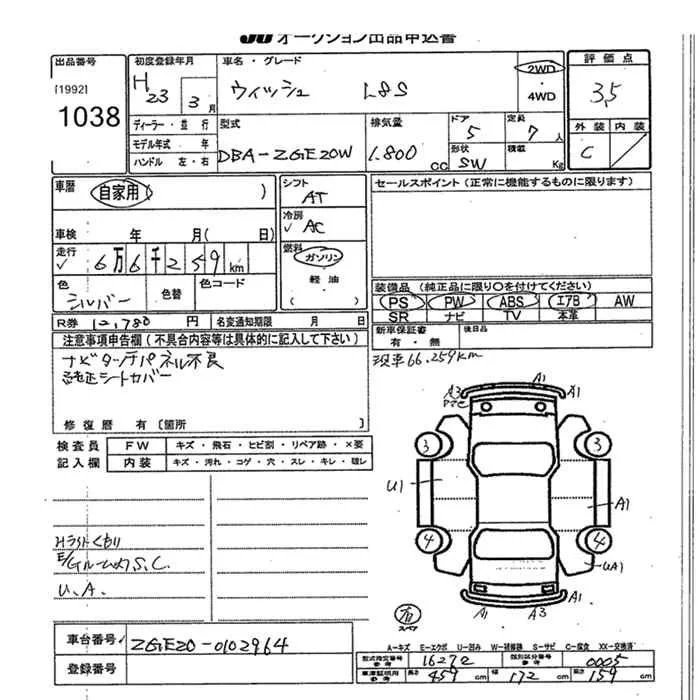 JU オークション出品申込書
出品番号
[1992]
1038
初度登録年月
H 23 3月
車名・グレード
ウィッシュ 1.8S
2WD
・4WD
評価点
3.5
外装 内装
C
ディーラー・並行
モデル年式 年
ハンドル 左・右
型式
DBA-ZGE20W
排気量
1.800 cc
ドア
5
定員
7人
形状
SW
積載
Kg
車歴 自家用 ( )
シフト
AT
冷房
AC
セールスポイント(正常に機能するものに限ります)
車検 年 月( 日)
走行
6万6千259km
燃料
ガソリン
軽油
色
シルバー
色替
色コード
装備品(純正品に限り○を付けてください)
PS PW ABS エアB AW
SR ナビ TV 本革
R券 12,780 円 名変通知期限 月 日
新車保証書
有・無
後日品
注意事項申告欄(不具合内容等は具体的に記入して下さい)
ナビタッチパネル不良
純正シートカバー
現車66.259km
修復歴 有〔箇所 〕
検査員
記入欄
FW キズ・飛石・ヒビ割・リペア跡・×要
内装 キズ・汚れ・コゲ・穴・スレ・キレ・破レ
A3 A1
A1
3 3
U1
A1
4 4
UA1
A1 A3 A1
スペア
Hライトくもり
E/Gルーム内S.C.
U.A.
車台番号 ZGE20-0102964
登録番号
A-キズ E-エクボ U-凹み W-補修跡 S-サビ C-腐食 XX-交換済
型式指定番号
参考
16272
類別区分番号
参考
0005
車庫証明用
参考
長さ 459cm 幅 172cm 高さ 159cm